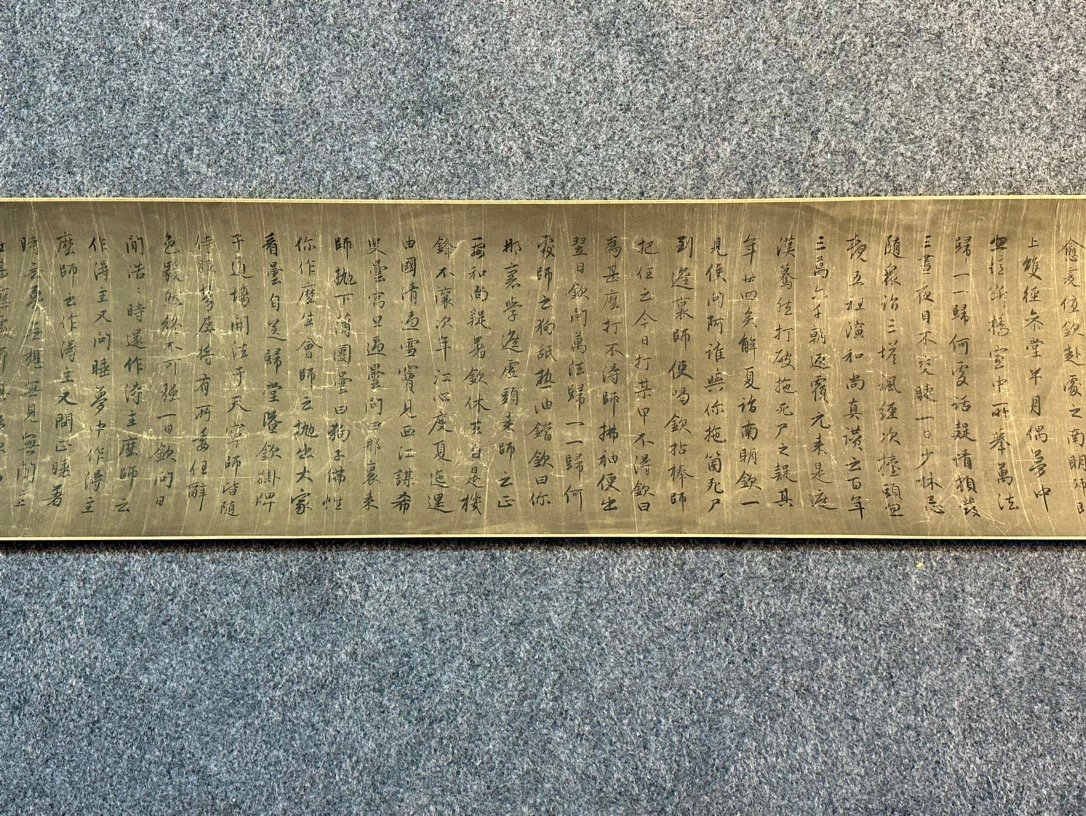 愈虎值欽赴處之南明師即
上雙徑參堂半月偶夢中
忽憶斷橋室中所舉萬法
歸一一歸何處話疑情頓發
三晝夜目不交睫一日少林忌
隨衆詣三塔諷經次擡頭忽
覩五祖演和尚真讚云百年
三萬六千朝返覆元来是遮
漢驀然打破拖死尸之疑其
年廿四矣解夏詣南明欽一
見便問阿誰與你拖箇死尸
到遮裏師便喝欽拈棒師
把住云今日打某甲不得欽曰
爲甚麽打不得師拂袖便出
翌日欽問萬法歸一一歸何
處師云狗舐熱油鐺欽曰你
那裏學遮虛頭来師云正
要和尚疑著欽休去自是機
鋒不讓次年江心度夏迤邐
由國清過雪竇見西江謀希
叟曇寓旦過曇問曰那裏来
師拋下蒲團曇曰狗子佛性
你作麽生會師云拋出大家
看曇自送歸堂暨欽掛牌
于道場開法于天寧師皆隨
侍服勞屢將有所委任辭
色毅然終不可強一日欽問日
間浩〻時還作得主麽師云
作得主又問睡夢中作得主
麽師云作得主又問正睡著
時無夢無想無見無聞主